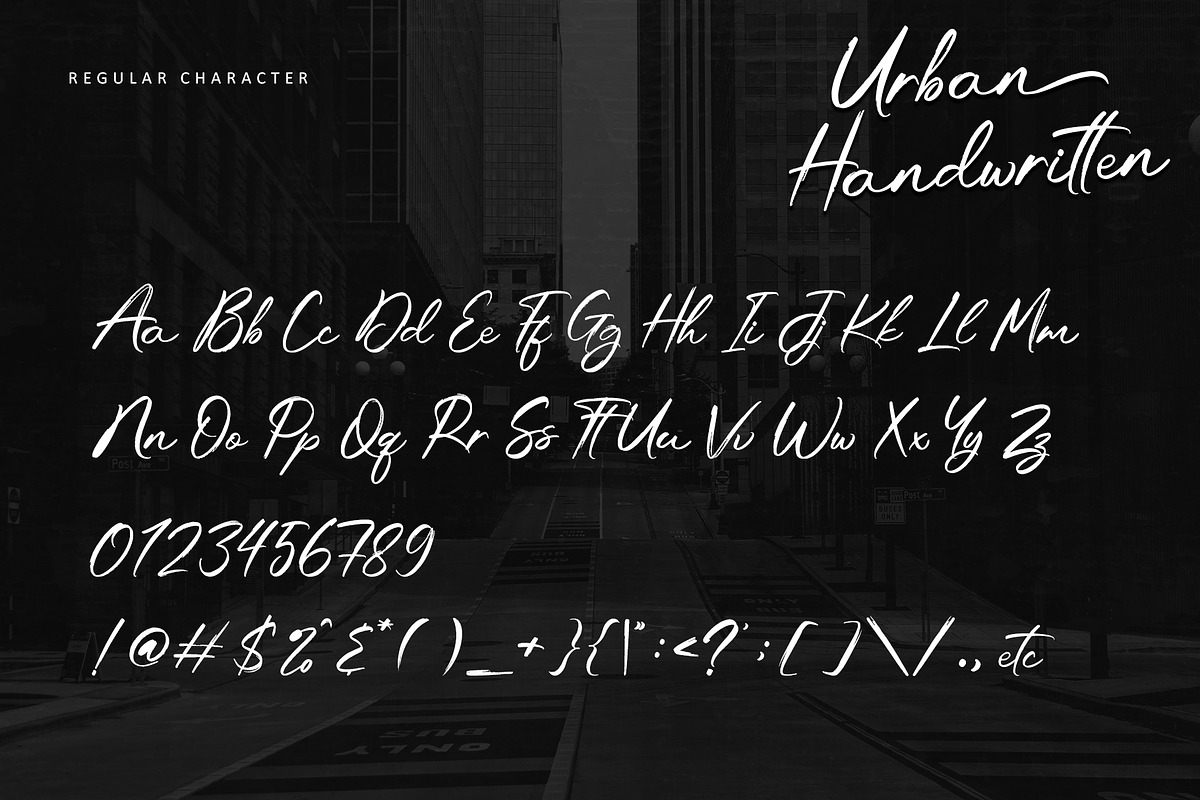 REGULAR CHARACTER
Urban
Handwritten
Aa Bb Cc Dd Ee Ff Gg Hh Ii Jj Kk Ll Mm
Nn Oo Pp Qq Rr Ss Tt Uu Vv Ww Xx Yy Zz
0123456789
!@#$%^&*()_+}{|":<?';[]\/.,etc
Post Ave
Post Ave
BUSES
ONLY
ONLY
BUS